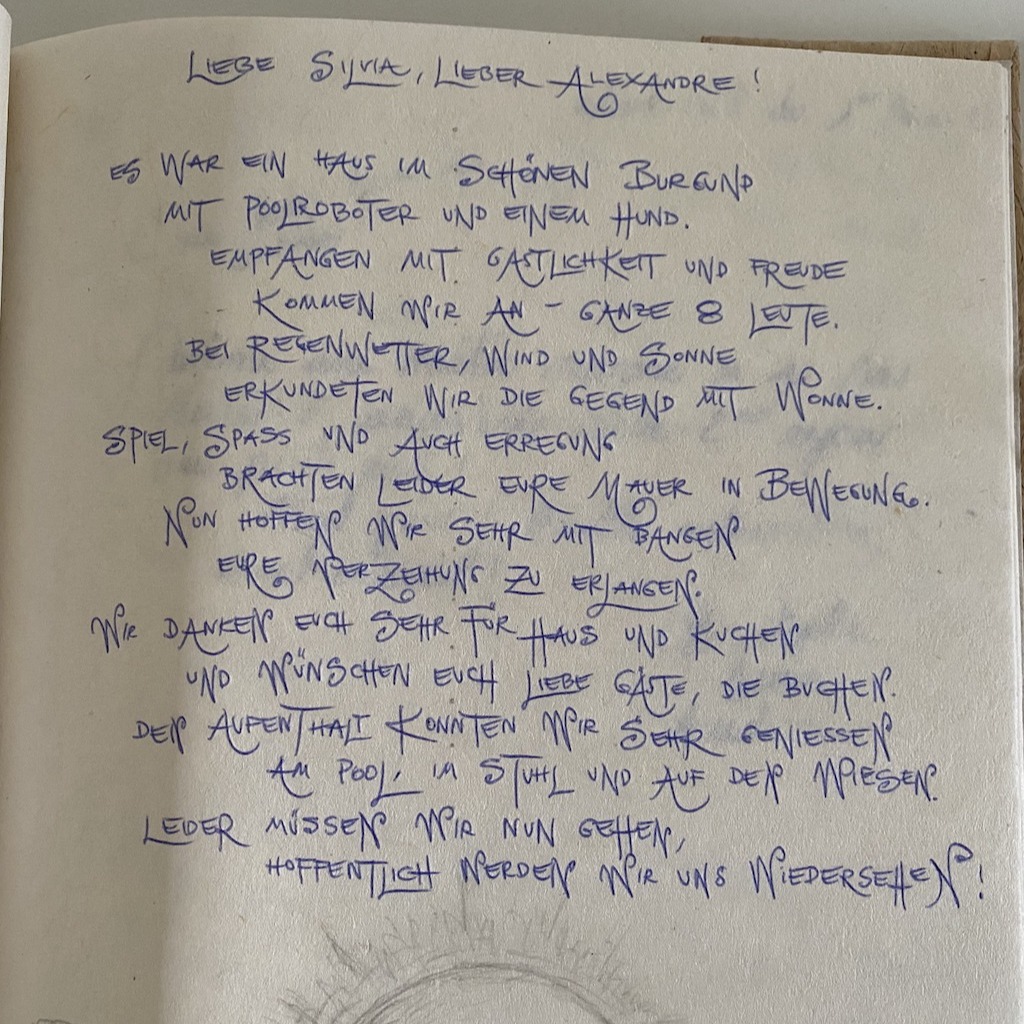 LIEBE SILVIA, LIEBER ALEXANDRE!
ES WAR EIN HAUS IM SCHÖNEN BURGUND
MIT POOLROBOTER UND EINEM HUND.
EMPFANGEN MIT GASTLICHKEIT UND FREUDE
KOMMEN WIR AN - GANZE 8 LEUTE.
BEI REGENWETTER, WIND UND SONNE
ERKUNDETEN WIR DIE GEGEND MIT WONNE.
SPIEL, SPASS UND AUCH ERREGUNG
BRACHTEN LEIDER EURE MAUER IN BEWEGUNG.
NUN HOFFEN WIR SEHR MIT BANGEN
EURE VERZEIHUNG ZU ERLANGEN.
WIR DANKEN EUCH SEHR FÜR HAUS UND KUCHEN
UND WÜNSCHEN EUCH LIEBE GÄSTE, DIE BUCHEN.
DEN AUFENTHALT KONNTEN WIR SEHR GENIESSEN
AM POOL, IM STUHL UND AUF DEN WIESEN.
LEIDER MÜSSEN WIR NUN GEHEN,
HOFFENTLICH WERDEN WIR UNS WIEDERSEHEN!